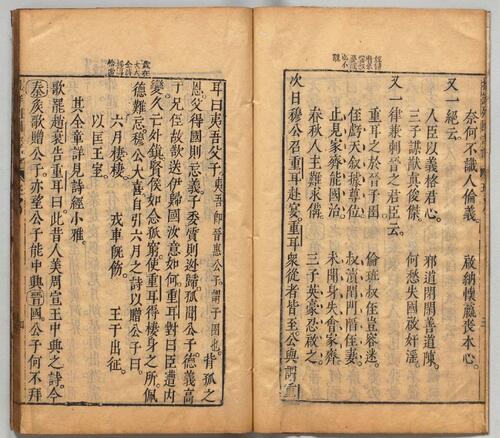 奈何不識人倫義 啟納懷嬴喪本心
又一絕云
人臣以義格君心 邪道閉閑善道陳
三子講猷真俊傑 何愁失國啟奸淫
又一律兼刺晉之君臣云
重耳之於晉子圉 倫班叔侄豈容迷
侄虧天叙 尊位 叔瀆閨門 侄妻
止見家齊能國治 未聞身失會家齊
春秋人主難求備 三子英豪忍啟之
次日穆公召重耳赴宴重耳眾從者皆至公與謂重
耳曰夷吾父子 夷吾即晉惠公子謂子圉也 背孤之
恩父得國則忘義子委質則逃歸孤聞公子德義高
于兄侄故欲送伊歸國汝意如何重耳對曰臣遭內
變久亡外鎮賢侯如念孤窮使重耳得棲身之所佩
德難忘穆公大喜自引六月之詩以贈公子曰
六月棲棲 戎車既飭 王于出征
以匡王室
其全章詳見詩經小雅
歌罷趙衰告重耳曰此昔人美周宣王中興之詩今
秦矦歌贈公子亦望公子能中興晉國公子何不拜